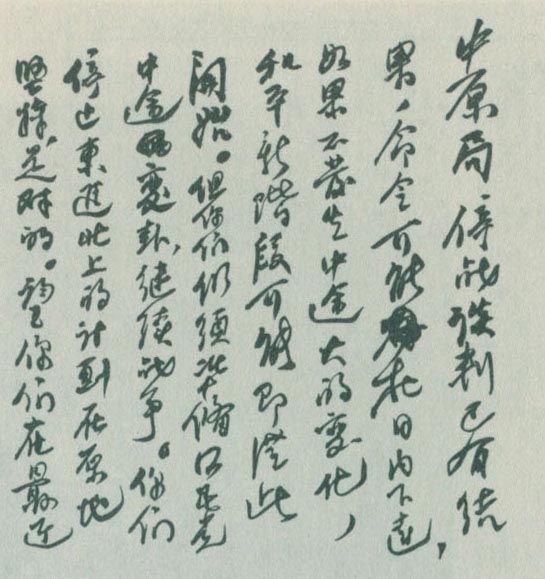 中原局：停战谈判已有结
果，命令可能于日内下达，
如果不发生中途大的变化，
和平新阶段可能即从此
开始。但你们仍须准备国民党
中途变卦，继续战争。你们
停止东进北上的计划在原地
坚持，是对的。望你们在最近